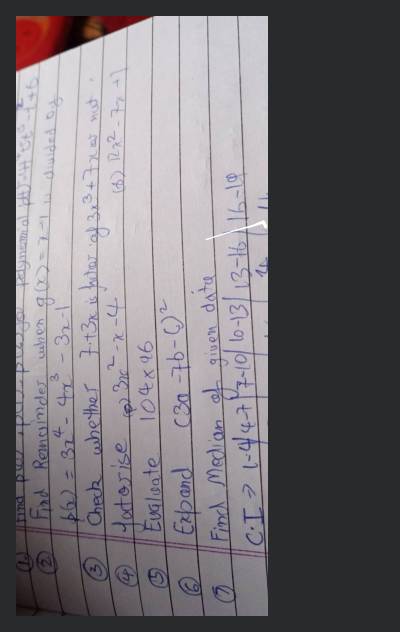 ① Find p(0), p(1), p(2) for polynomial
② Find Remainder when g(x) = x-1 is divided by
p(x) = 3x⁴ - 4x³ - 3x - 1
③ Check whether 7+3x is factor of 3x³+7x or not.
④ factorise (a) 3x² - x - 4 (b) 12x² - 7x + 1
⑤ Evaluate 104 x 96
⑥ Expand (3a - 7b - c)²
⑦ Find Median of given data
C.I → 1-4 | 4-7 | 7-10 | 10-13 | 13-16 | 16-19